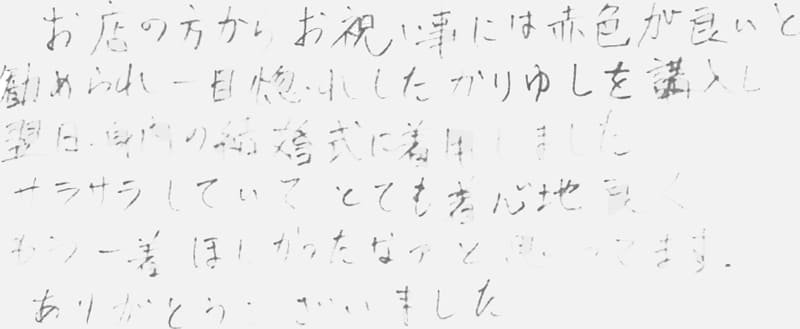 お店の方からお祝い事には赤色が良いと
勧められ一目惚れしたかりゆしを講入し
翌日、身内の結婚式に着用しました
サラサラしていてとても着心地良く
もう一着ほしかったなァと思ってます.
ありがとうございました